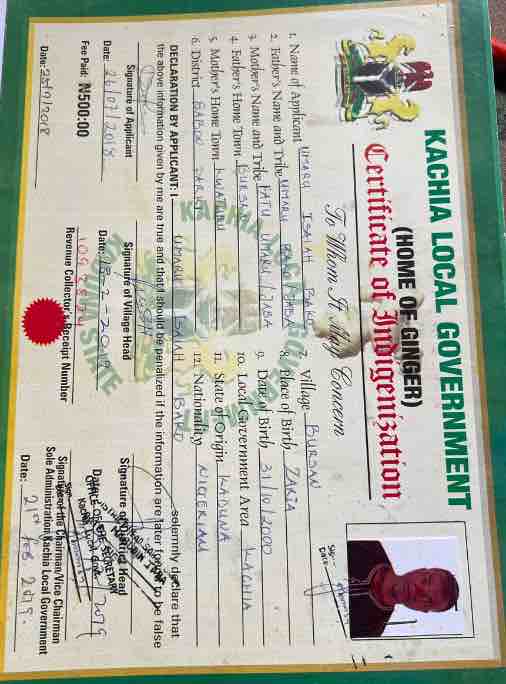 KACHIA LOCAL GOVERNMENT
(HOME OF GINGER)
Certificate of Indigenization
To Whom It May Concern
1. Name of Applicant UMARU ISAIAH BAKO
2. Father's Name and Tribe UMARU BAKO/JABA
3. Mother's Name and Tribe FATU UMARU/JABA
4. Father's Home Town BURSAN
5. Mother's Home Town KWATURU
6. District
7. Village BURSAN
8. Place of Birth ZARIA
9. Date of Birth 31/10/2000
10. Local Government Area KACHIA
11. State of Origin KADUNA
12. Nationality NIGERIAN
DECLARATION BY APPLICANT: I UMARU ISAIAH BAKO solemnly declare that
the above information given by me are true and that I should be penalized if the information are later found to be false
Signature of Applicant
Date: 26/07/2018
Signature of Village Head
Date:
Signature of District Head
Date
Fee Paid: ₦500:00
Revenue Collector's Receipt Number
Signature of the Chairman/Vice Chairman
Sole Administration Kachia Local Government
Date:
Date: 21st Feb 2019.
Sign
Date
KACHIA LOCAL GOVERNMENT
KADUNA STATE